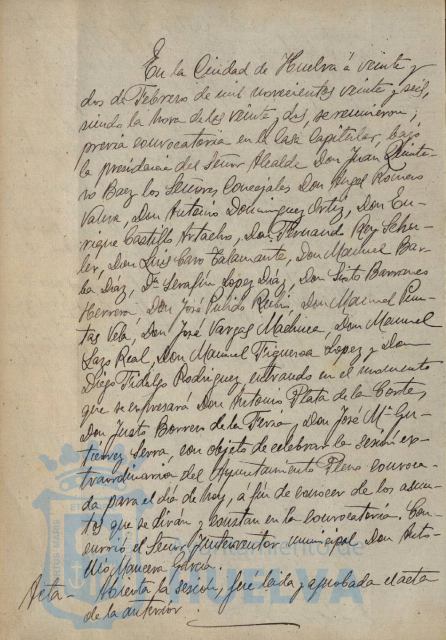 En la Ciudad de Huelva á veinte y
dos de Febrero de mil novecientos veinte y seis,
siendo la hora de las veinte y dos, se reunieron,
previa convocatoria en la Casa Capitular, bajo
la presidencia del Señor Alcalde Don Juan Quinte-
ro Baez los Señores Concejales Don Angel Romero
Valera, Don Antonio Dominguez Ortiz, Don En-
rique Castillo Artacho, Don Fernando Rey Schu-
ler, Don Luis Caro Talamante, Don Manuel Bar-
ba Diáz, Dn Serafín Lopez Diáz, Don Sixto Barranco
Herrera, Don José Pulido Rubio, Don Manuel Pun-
tas Vela, Don José Vargas Machuca, Don Manuel
Lazo Real, Don Manuel Figueroa Lopez y Don
Diego Fidalgo Rodriguez, entrando en el momento
que se expresará Don Antonio Plata de la Corte,
Don Justo Borrero de la Feria, Don José Mª Gu-
tiérrez Serra, con objeto de celebrar la sesión ex-
traordinaria del Ayuntamiento Pleno convoca-
da para el dia de hoy, a fin de conocer de los asun-
tos que se dirán y constan en la convocatoria. Con-
currió el Señor Interventor municipal Don Anto-
nio Mancera García.
Acta - Abierta la sesión, fué leida y aprobada el acta
de la anterior.
Ayuntamiento de
HUELVA